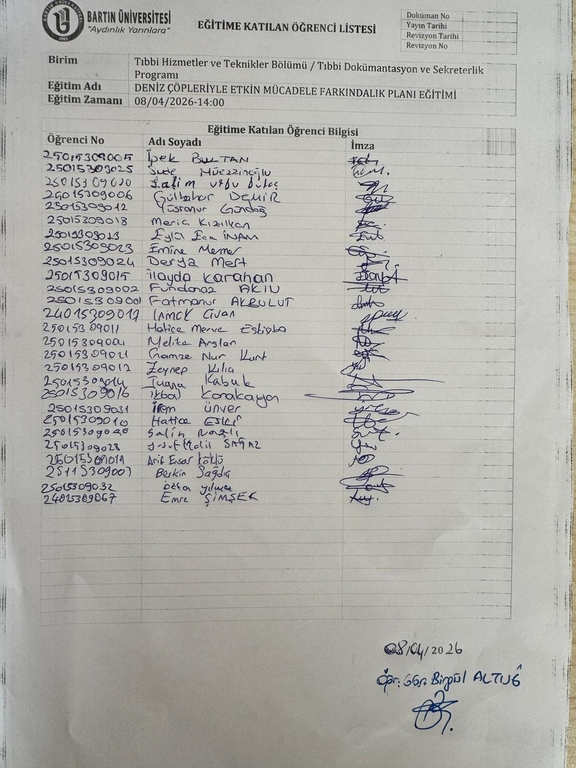 BARTIN ÜNİVERSİTESİ
"Aydınlık Yarınlara"
EĞİTİME KATILAN ÖĞRENCİ LİSTESİ
Doküman No
Yayın Tarihi
Revizyon Tarihi
Revizyon No
Birim Tıbbi Hizmetler ve Teknikler Bölümü / Tıbbi Dokümantasyon ve Sekreterlik
Programı
Eğitim Adı DENİZ ÇÖPLERİYLE ETKİN MÜCADELE FARKINDALIK PLANI EĞİTİMİ
Eğitim Zamanı 08/04/2026-14:00
Eğitime Katılan Öğrenci Bilgisi
Öğrenci No Adı Soyadı İmza
25015309005 İpek BULTAN
25015309025 Sude
25015309020
26015309006 Gülbahar DEMİR
25015309012 Yasanur Gündağ
25015309018 Meric Kızılkan
25015309013 Eylül Ece İNAN
25015309023 Emine Memer
25015309024 Derya Mert
25015309015 İlayda Karahan
25015309002 Fundanaz AKIN
25015309001 Fatmanur AKBULUT
24015309017 Civan
25015309011 Hatice Merve
25015309004 Melike Arslan
25015309021 Gamze Nur Kurt
25015309012 Zeynep Kılıç
25015309014 Tuana Kabuk
25015309016 İkbal Karakayon
25015309031 İrem Ünver
25015309010 Hatice ESKİ
25015309028 Halil SAĞAZ
Arif Ensar
25115309007 Berkin Sağdıç
25015309032 yılmaz
24015309067 Emre ŞİMŞEK
08/04/2026
Öğr. Gör. Birgül ALTUĞ